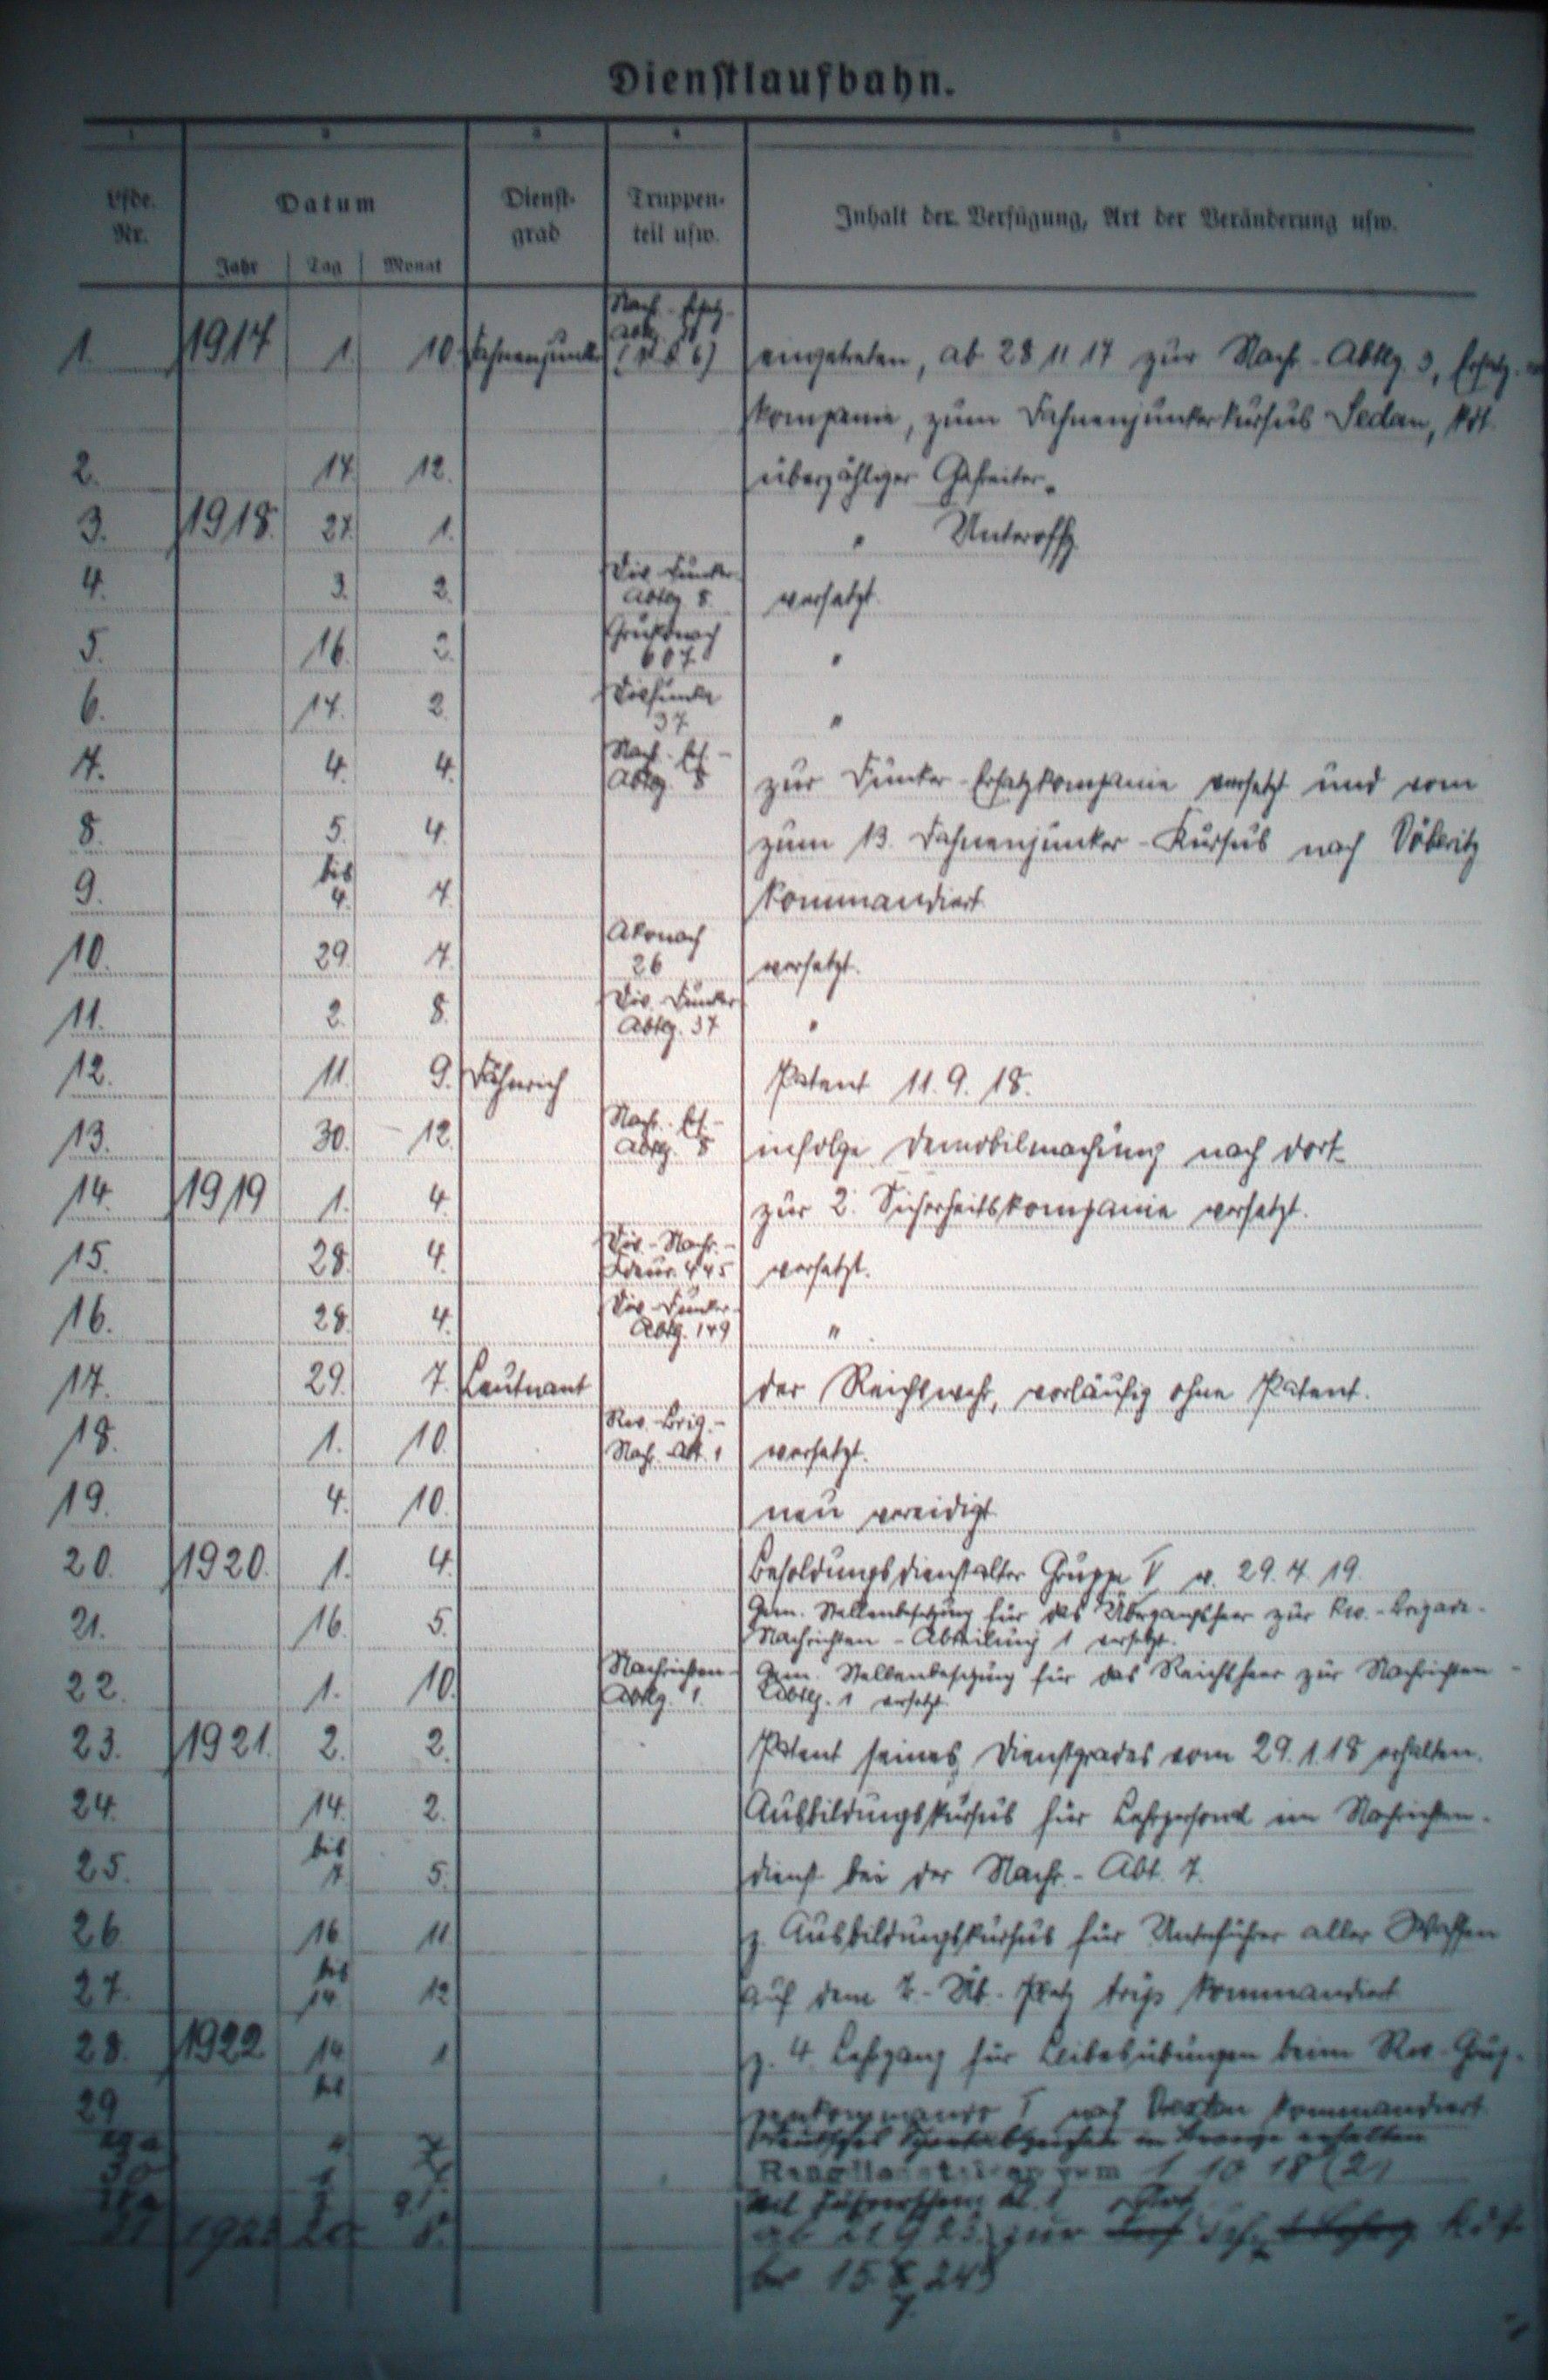 Dienstlaufbahn.
1 2 3 4 5
Lfde. Nr.
Datum
Jahr Tag Monat
Dienst-
grad
Truppen-
teil usw.
Inhalt der Verfügung, Art der Veränderung usw.
Nachr.-Ersatz-
Abtlg.
1. 1917 1. 10. Fahnenjunker eingetreten, ab 28 11 17 zur Nachr.-Abtlg. 3, Ersatz-
kompanie, zum Fahnenjunkerkursus Sedan, kdt.
2. 17. 12. überzähliger Gefreiter.
3. 1918. 27. 1. " Unteroffz.
4. 3. 2. Div.-Funker-
Abtlg. 8. versetzt.
5. 16. 2.
607. "
6. 17. 2. Divfunka
37 "
7. 4. 4. Nachr.-Ers.-
Abtlg. 8 zur Funker-Ersatzkompanie versetzt und vom
8. 5. 4. zum 13. Fahnenjunker-Kursus nach Döberitz
9. bis 4. 7. kommandiert.
10. 29. 7. Akonach
26 versetzt.
11. 2. 8. Div.-Funker-
Abtlg. 37 "
12. 11. 9. Fähnrich Patent 11. 9. 18.
13. 30. 12. Nachr.-Ers.-
Abtlg. 8 infolge Demobilmachung nach dort-
14. 1919 1. 4. zur 2. Sicherheitskompanie versetzt.
15. 28. 4. Div.-Nachr.-
Kdeur. 445 versetzt.
16. 28. 4. Div.-Funker-
Abtlg. 149 "
17. 29. 7. Leutnant der Reichswehr, vorläufig ohne Patent.
18. 1. 10. Rw.-Brig.-
Nachr.-Abt. 1 versetzt.
19. 4. 10. neu vereidigt
20. 1920. 1. 4. Besoldungsdienstalter Gruppe V v. 29. 7. 19.
21. 16. 5. Gem. Stellenbesetzung für das Übergangsheer zur Rw.-Brigade-
Nachrichten-Abteilung 1 versetzt.
22. 1. 10. Nachrichten-
Abtlg. 1. Gem. Stellenbesetzung für das Reichsheer zur Nachrichten-
Abtlg. 1 versetzt.
23. 1921. 2. 2. Patent seines Dienstgrades vom 29. 1. 18 erhalten.
24. 14. 2. Ausbildungskursus für Lehrpersonal im Nachrichten-
25. bis 7. 5. dienst bei der Nachr.-Abt. 7.
26 16 11. z. Ausbildungskursus für Unterführer aller Waffen
27. bis 14. 12 auf dem Tr.-Üb.-Platz kommandiert
28. 1922 14. 1 z. 4. Lehrgang für Leibesübungen beim Rw.-Grup-
29 bis penkommando I nach kommandiert
Deutsches Sportabzeichen in Bronze erhalten
30 vom 1 10 18 (2)
Kl. 1
31 20. 8. ab 21 9 23 zur kdt.
bis 15. 24
7.